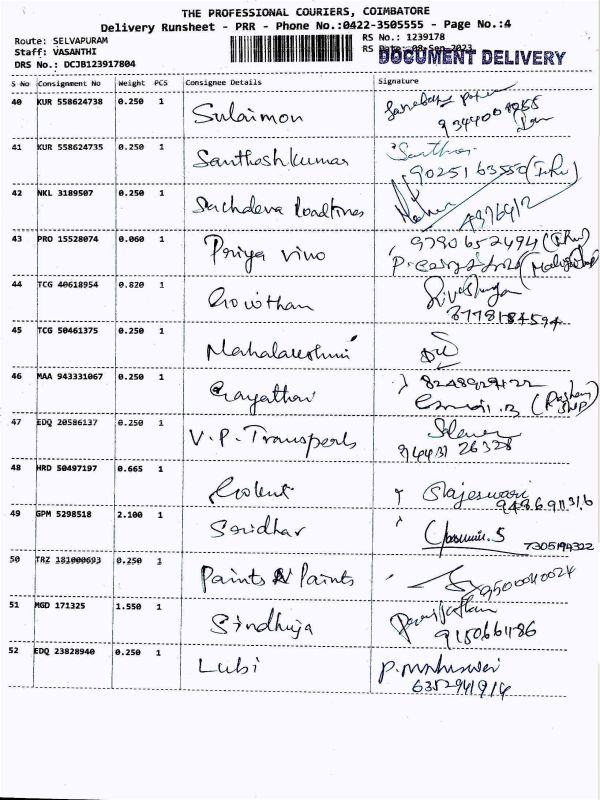 THE PROFESSIONAL COURIERS, COIMBATORE
Delivery Runsheet - PRR - Phone No.:0422-3505555 - Page No.:4
Route: SELVAPURAM
Staff: VASANTHI
DRS No.: DCJB123917804
RS No.: 1239178
RS Date: 08-Sep-2023
DOCUMENT DELIVERY
S No Consignment No Weight PCS Consignee Details Signature
40 KUR 558624738 0.250 1 Sulaimon
41 KUR 558624735 0.250 1 Santhoshkumar
9025163550
42 NKL 3189507 0.250 1 Sachdeva Roadlines
43 PRO 15528074 0.060 1 Priya vino 9790652494
44 TCG 40618954 0.820 1 Gowthan
8778184594
45 TCG 50461375 0.250 1 Mahalakshmi
46 MAA 943331067 0.250 1 Gayathri
47 EDQ 20586137 0.250 1 V.P. Transports
94431 26328
48 HRD 50497197 0.665 1 Rajeswari
49 GPM 5298518 2.100 1 Sridhar
7305194322
50 TRZ 181000693 0.250 1 Paints N Paints 9500040024
51 MGD 171325 1.550 1 Sindhuja
52 EDQ 23828940 0.250 1 Lubi